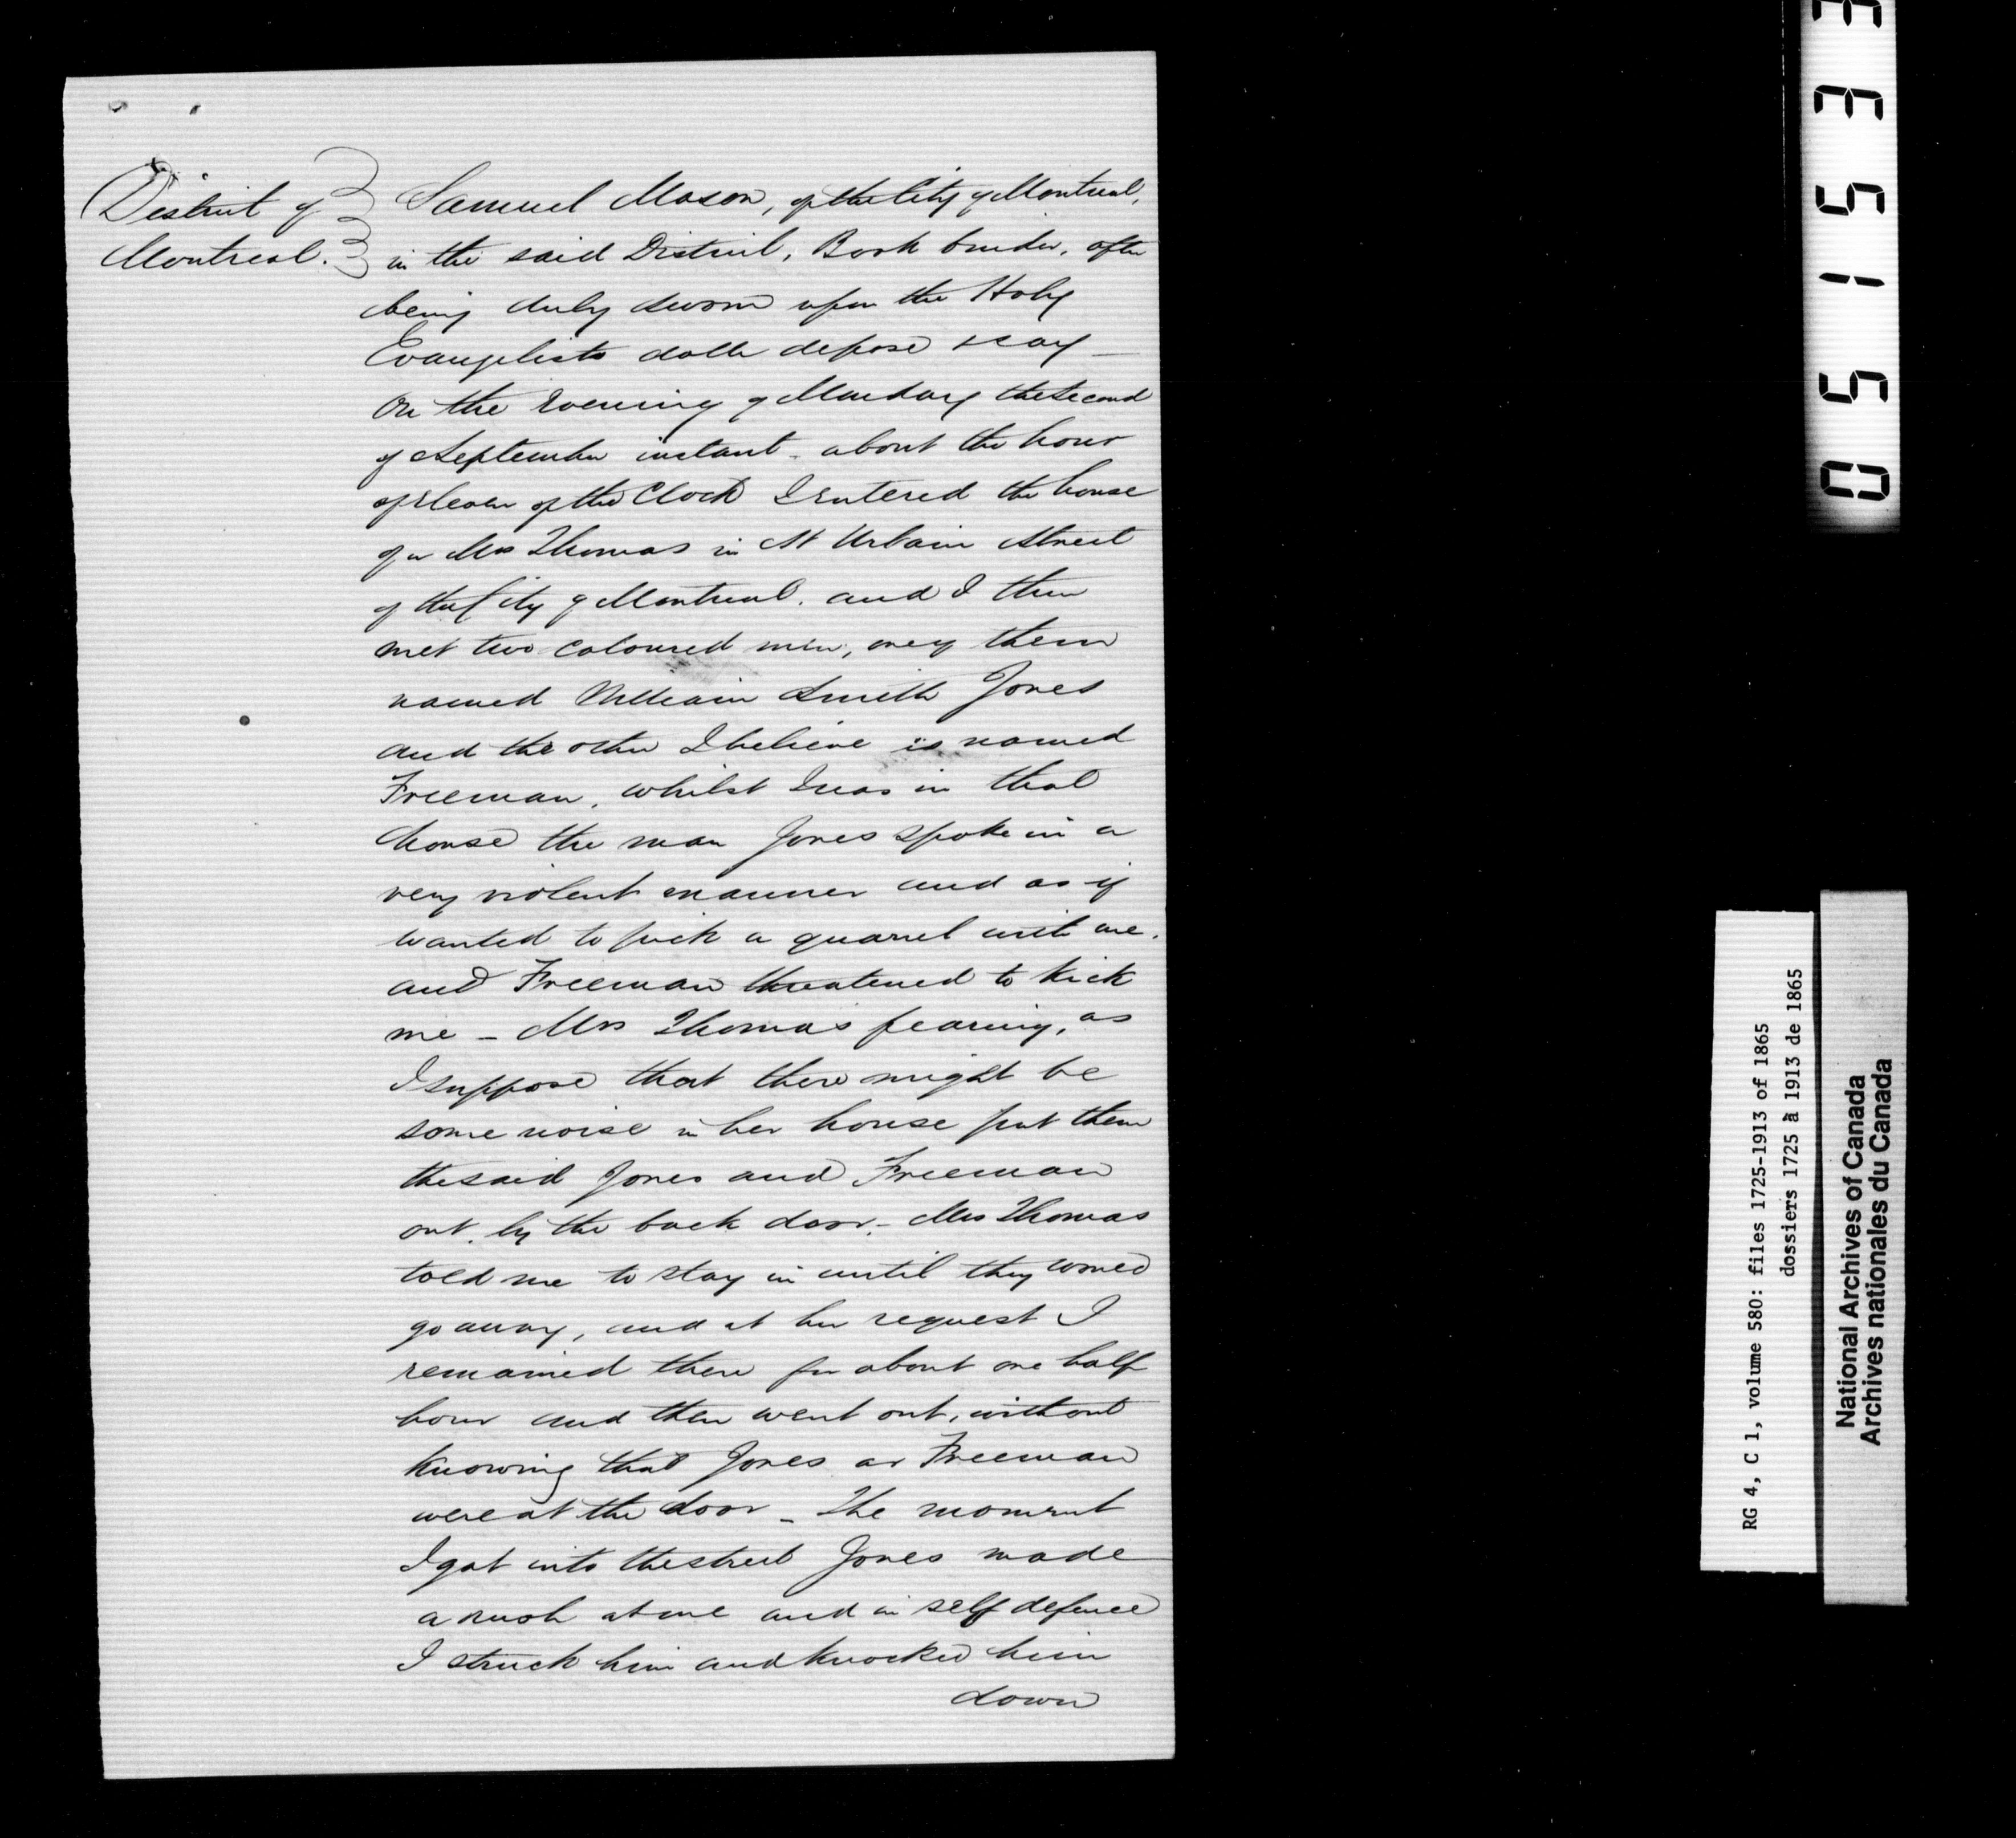 District of
Montreal.
Samuel Mason, of the City of Montreal,
in the said District, Book binder, after
being duly sworn upon the Holy
Evangelists doth depose & say —
On the Evening of Monday the Second
of September instant - about the hour
of Eleven of the Clock I entered the house
of a Mrs Thomas in St Urbain Street
of the City of Montreal. and I then
met two coloured men, one of them
named William Smith Jones
and the other I believe is named
Freeman, whilst I was in that
house the man Jones spoke in a
very violent manner and as if
wanted to pick a quarrel with me.
and Freeman threatened to kick
me - Mrs Thomas fearing, as
I suppose that there might be
some noise in her house put them
the said Jones and Freeman
out. by the back door. - Mrs Thomas
told me to stay in until they
go away, and at her request I
remained there for about one half
hour and then went out, without
knowing that Jones or Freeman
were at the door - The moment
I got into the street Jones made
a rush at me and in self defence
I struck him and knocked him
down
051533
RG 4, C 1, volume 580: files 1725-1913 of 1865
dossiers 1725 à 1913 de 1865
National Archives of Canada
Archives nationales du Canada